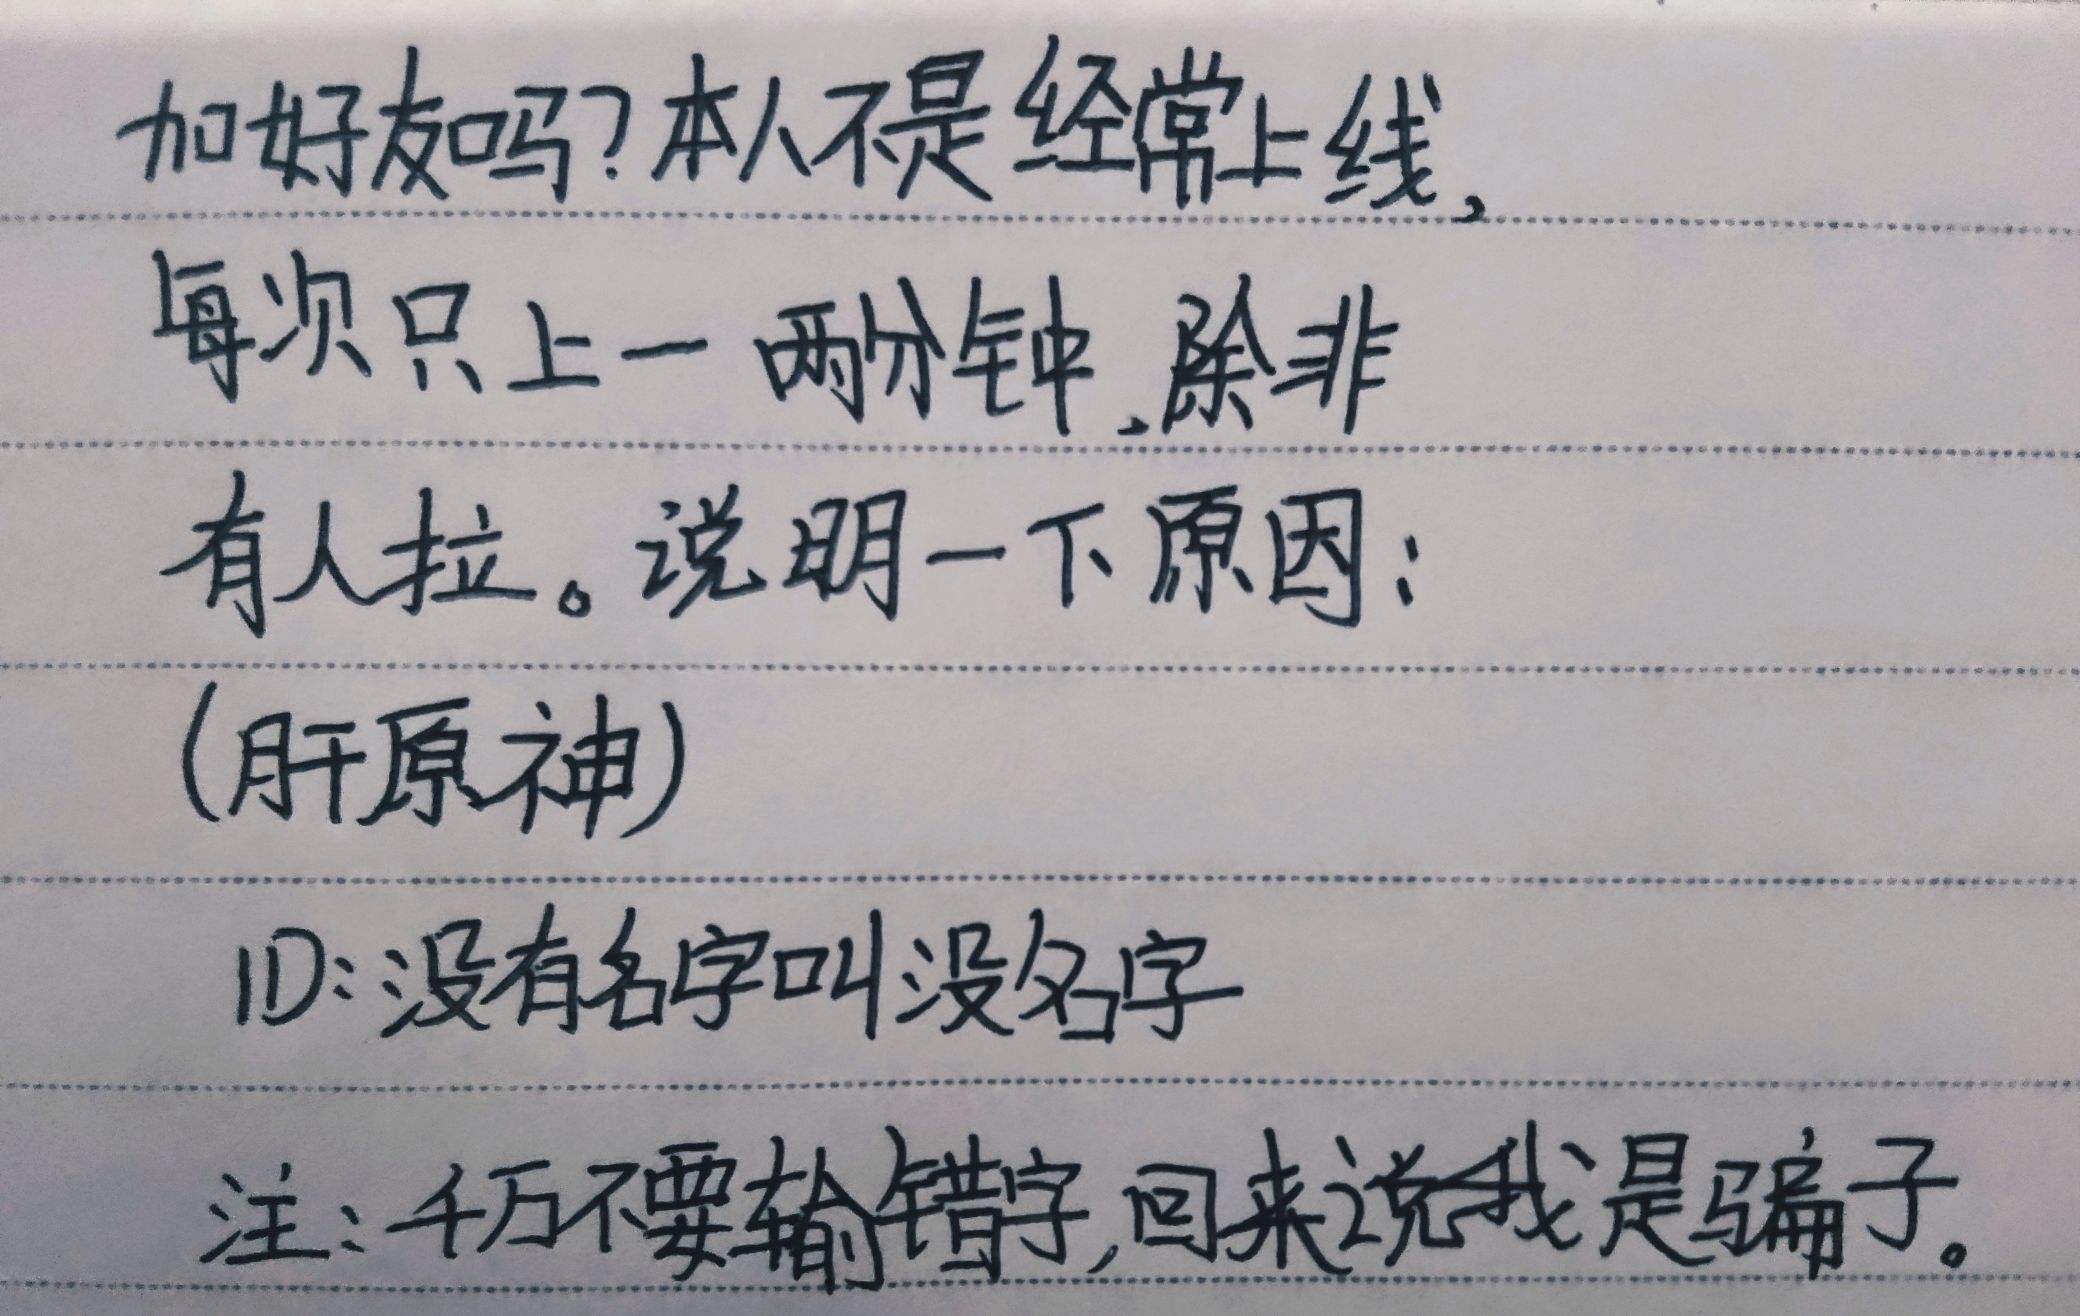 加好友吗?本人不是经常上线,
每次只上一两分钟,除非
有人拉。说明一下原因:
(肝原神)
ID:没有名字叫没名字
注:千万不要输错字,回来说我是骗子。